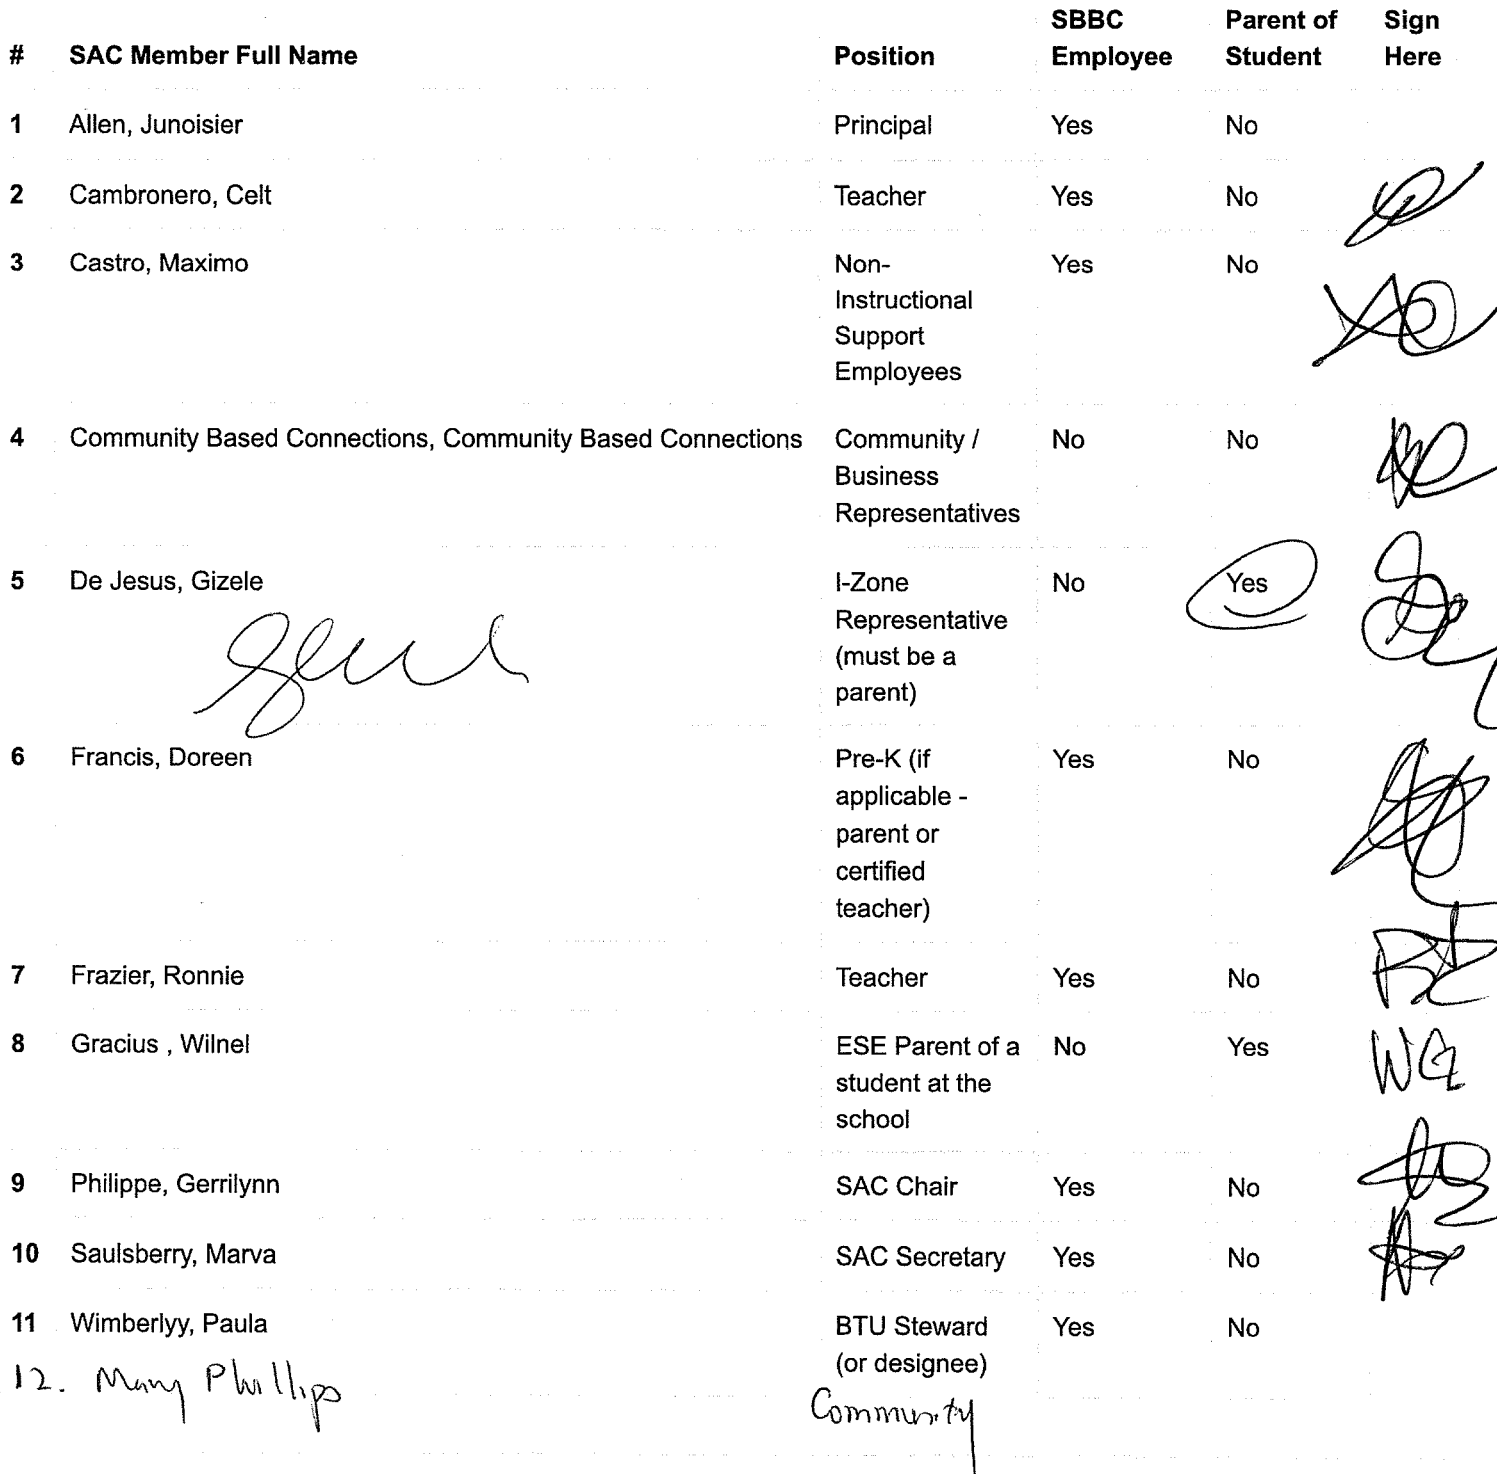 # SAC Member Full Name Position SBBC Employee Parent of Student Sign Here
1 Allen, Junoisier Principal Yes No
2 Cambronero, Celt Teacher Yes No
3 Castro, Maximo Non-Instructional Support Employees Yes No
4 Community Based Connections, Community Based Connections Community / Business Representatives No No
5 De Jesus, Gizele I-Zone Representative (must be a parent) No Yes
6 Francis, Doreen Pre-K (if applicable - parent or certified teacher) Yes No
7 Frazier, Ronnie Teacher Yes No
8 Gracius , Wilnel ESE Parent of a student at the school No Yes WG
9 Philippe, Gerrilynn SAC Chair Yes No
10 Saulsberry, Marva SAC Secretary Yes No
11 Wimberlyy, Paula BTU Steward (or designee) Yes No
12. Mary Phillips Community